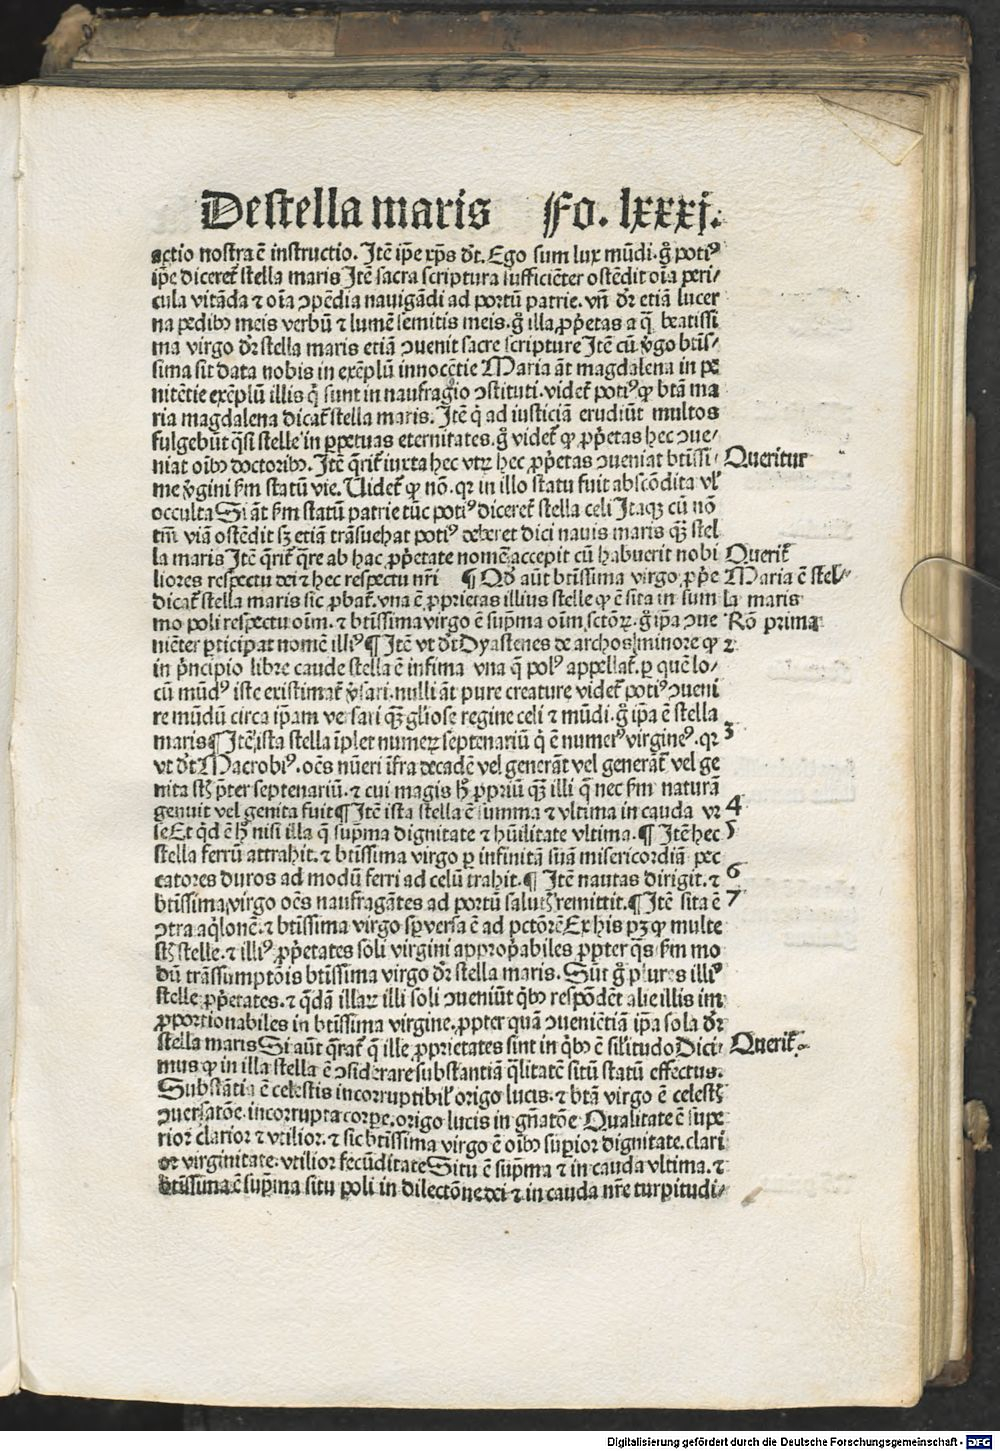 De stella maris Fo. lxxxj.
actio nostra ē instructio. Itē ip̄e xp̄s dt̄. Ego sum lux mūdi. gͦ potiꝰ
ip̄e diceret̄ stella maris Itē sacra scriptura sufficiēter ostēdit oīa peri/
cula vitāda ⁊ oīa ꝯpēdia nauigādi ad portū patrie. vn̄ dr̄ etiā lucer
na pedibꝫ meis verbū ⁊ lumē semitis meis. gͦ illa ꝓp̄etas a q̄ beatissi
ma virgo dr̄ stella maris etiā ꝯuenit sacre scripture Itē cū v̓go btīs/
sima sit data nobis in exēplū innocētie Maria āt magdalena in pe
nitētie exēplū illis q̄ sunt in naufragio ꝯstituti. videt̄ potiꝰ ꝙ btā ma
ria magdalena dicat̄ stella maris. Itē q̄ ad iusticiā erudiūt multos
fulgebūt q̄si stelle in ꝑpetuas eternitates. gͦ videt̄ ꝙ ꝓp̄etas hec ꝯue/
niat oībꝫ doctoribꝫ. Itē q̄rit̄ iuxta hec vtꝝ hec ꝓp̄etas ꝯueniat btīssi/ Queritur
me v̓gini ẜm statū vie. Uidet̄ ꝙ nō. qꝛ in illo statu fuit abscōdita vl̓
occulta Si āt ẜm statū patrie tūc potiꝰ diceret̄ stella celi Itaqꝫ cū nō
tm̄ viā ostēdit sꝫ etiā trāsuehat potiꝰ deberet dici nauis maris qꝫ̄ stel
la maris Itē q̄rit̄ q̄re ab hac ꝓp̄etate nomē accepit cū habuerit nobi Querit̄
liores respectu dei ⁊ hec respectu nr̄i ¶ Qd̓ aūt btīssima virgo ꝓp̄e Maria ē stel/
dicat̄ stella maris sic ꝓbat̄. vna ē ꝓprietas illius stelle ꝙ ē sita in sum la maris
mo poli respectu oīm. ⁊ btīssima virgo ē sup̄ma oīm sctōꝝ. gͦ ip̄a ꝯue Rō prima
niēter ꝑticipat nomē illiꝰ ¶ Itē vt dt̄ Dyastenes de archos minore ꝙ 2
in p̓ncipio libre caude stella ē infima vna q̄ polꝰ appellat̄. ꝑ quē lo/
cū mūdꝰ iste existimat̄ v̓sari. nulli āt pure creature videt̄ potiꝰ ꝯueni
re mūdū circa ip̄am versari qꝫ̄ gl̓iose regine celi ⁊ mūdi. gͦ ip̄a ē stella
maris ¶ Itē ista stella īplet numeꝝ septenariū q̓ ē numerꝰ virgineꝰ. qꝛ 3
vt dt̄ Macrobiꝰ. oēs nūeri īfra decadē vel generāt vel generāt̄ vel ge
nita sūt p̄ter septenariū. ⁊ cui magis hͦ ꝓpriū qꝫ̄ illi q̄ nec ẜm naturā
genuit vel genita fuit ¶ Itē ista stella ē summa ⁊ vltima in cauda vr 4
se Et qd̓ ē hͦ nisi illa q̄ sup̄ma dignitate ⁊ hūilitate vltima. ¶ Itē hec 5
stella ferrū attrahit. ⁊ btīssima virgo ꝑ infinitā suā misericordiā pec
catores duros ad modū ferri ad celū trahit. ¶ Itē nautas dirigit. ⁊ 6
btīssima virgo oēs naufragātes ad portū salutꝭ remittit. ¶ Itē sita ē 7
ꝯtra aq̓lonē. ⁊ btīssima virgo sp̄ versa ē ad pctōrē Ex his pꝫ ꝙ multe
sūt stelle. ⁊ illiꝰ ꝓp̄etates soli virgini appropͥabiles ꝓpter q̄s ẜm mo
dū trāssumptōis btīssima virgo dr̄ stella maris. Sūt gͦ plures illiꝰ
stelle ꝓp̄etates. ⁊ q̄dā illaꝝ illi soli ꝯueniūt q̓bꝫ respōdēt alie illis im
ꝓportionabiles in btīssima virgine. ꝓpter quā ꝯueniētiā ip̄a sola dr̄
stella maris Si aūt q̄rat̄ q̄ ille ꝓprietates sint in q̓bꝫ ē sil̓itudo Dici/ Querit̄.
mus ꝙ in illa stella ē ꝯsiderare substantiā q̄litatē sitū statū effectus.
Substātia ē celestis incorruptibil̓ origo lucis. ⁊ btā virgo ē celestꝭ
ꝯuersatōe. incorrupta corꝑe. origo lucis in gn̄atōe Qualitate ē supe
rior clarior ⁊ vtilior. ⁊ sic btīssima virgo ē oībꝫ suꝑior dignitate. clari
or virginitate. vtilior fecūditate Situ ē sup̄ma ⁊ in cauda vltima. ⁊
btīssima ē sup̄ma situ poli in dilectōne dei ⁊ in cauda nr̄e turpitudi/
Digitalisierung gefördert durch die Deutsche Forschungsgemeinschaft - DFG